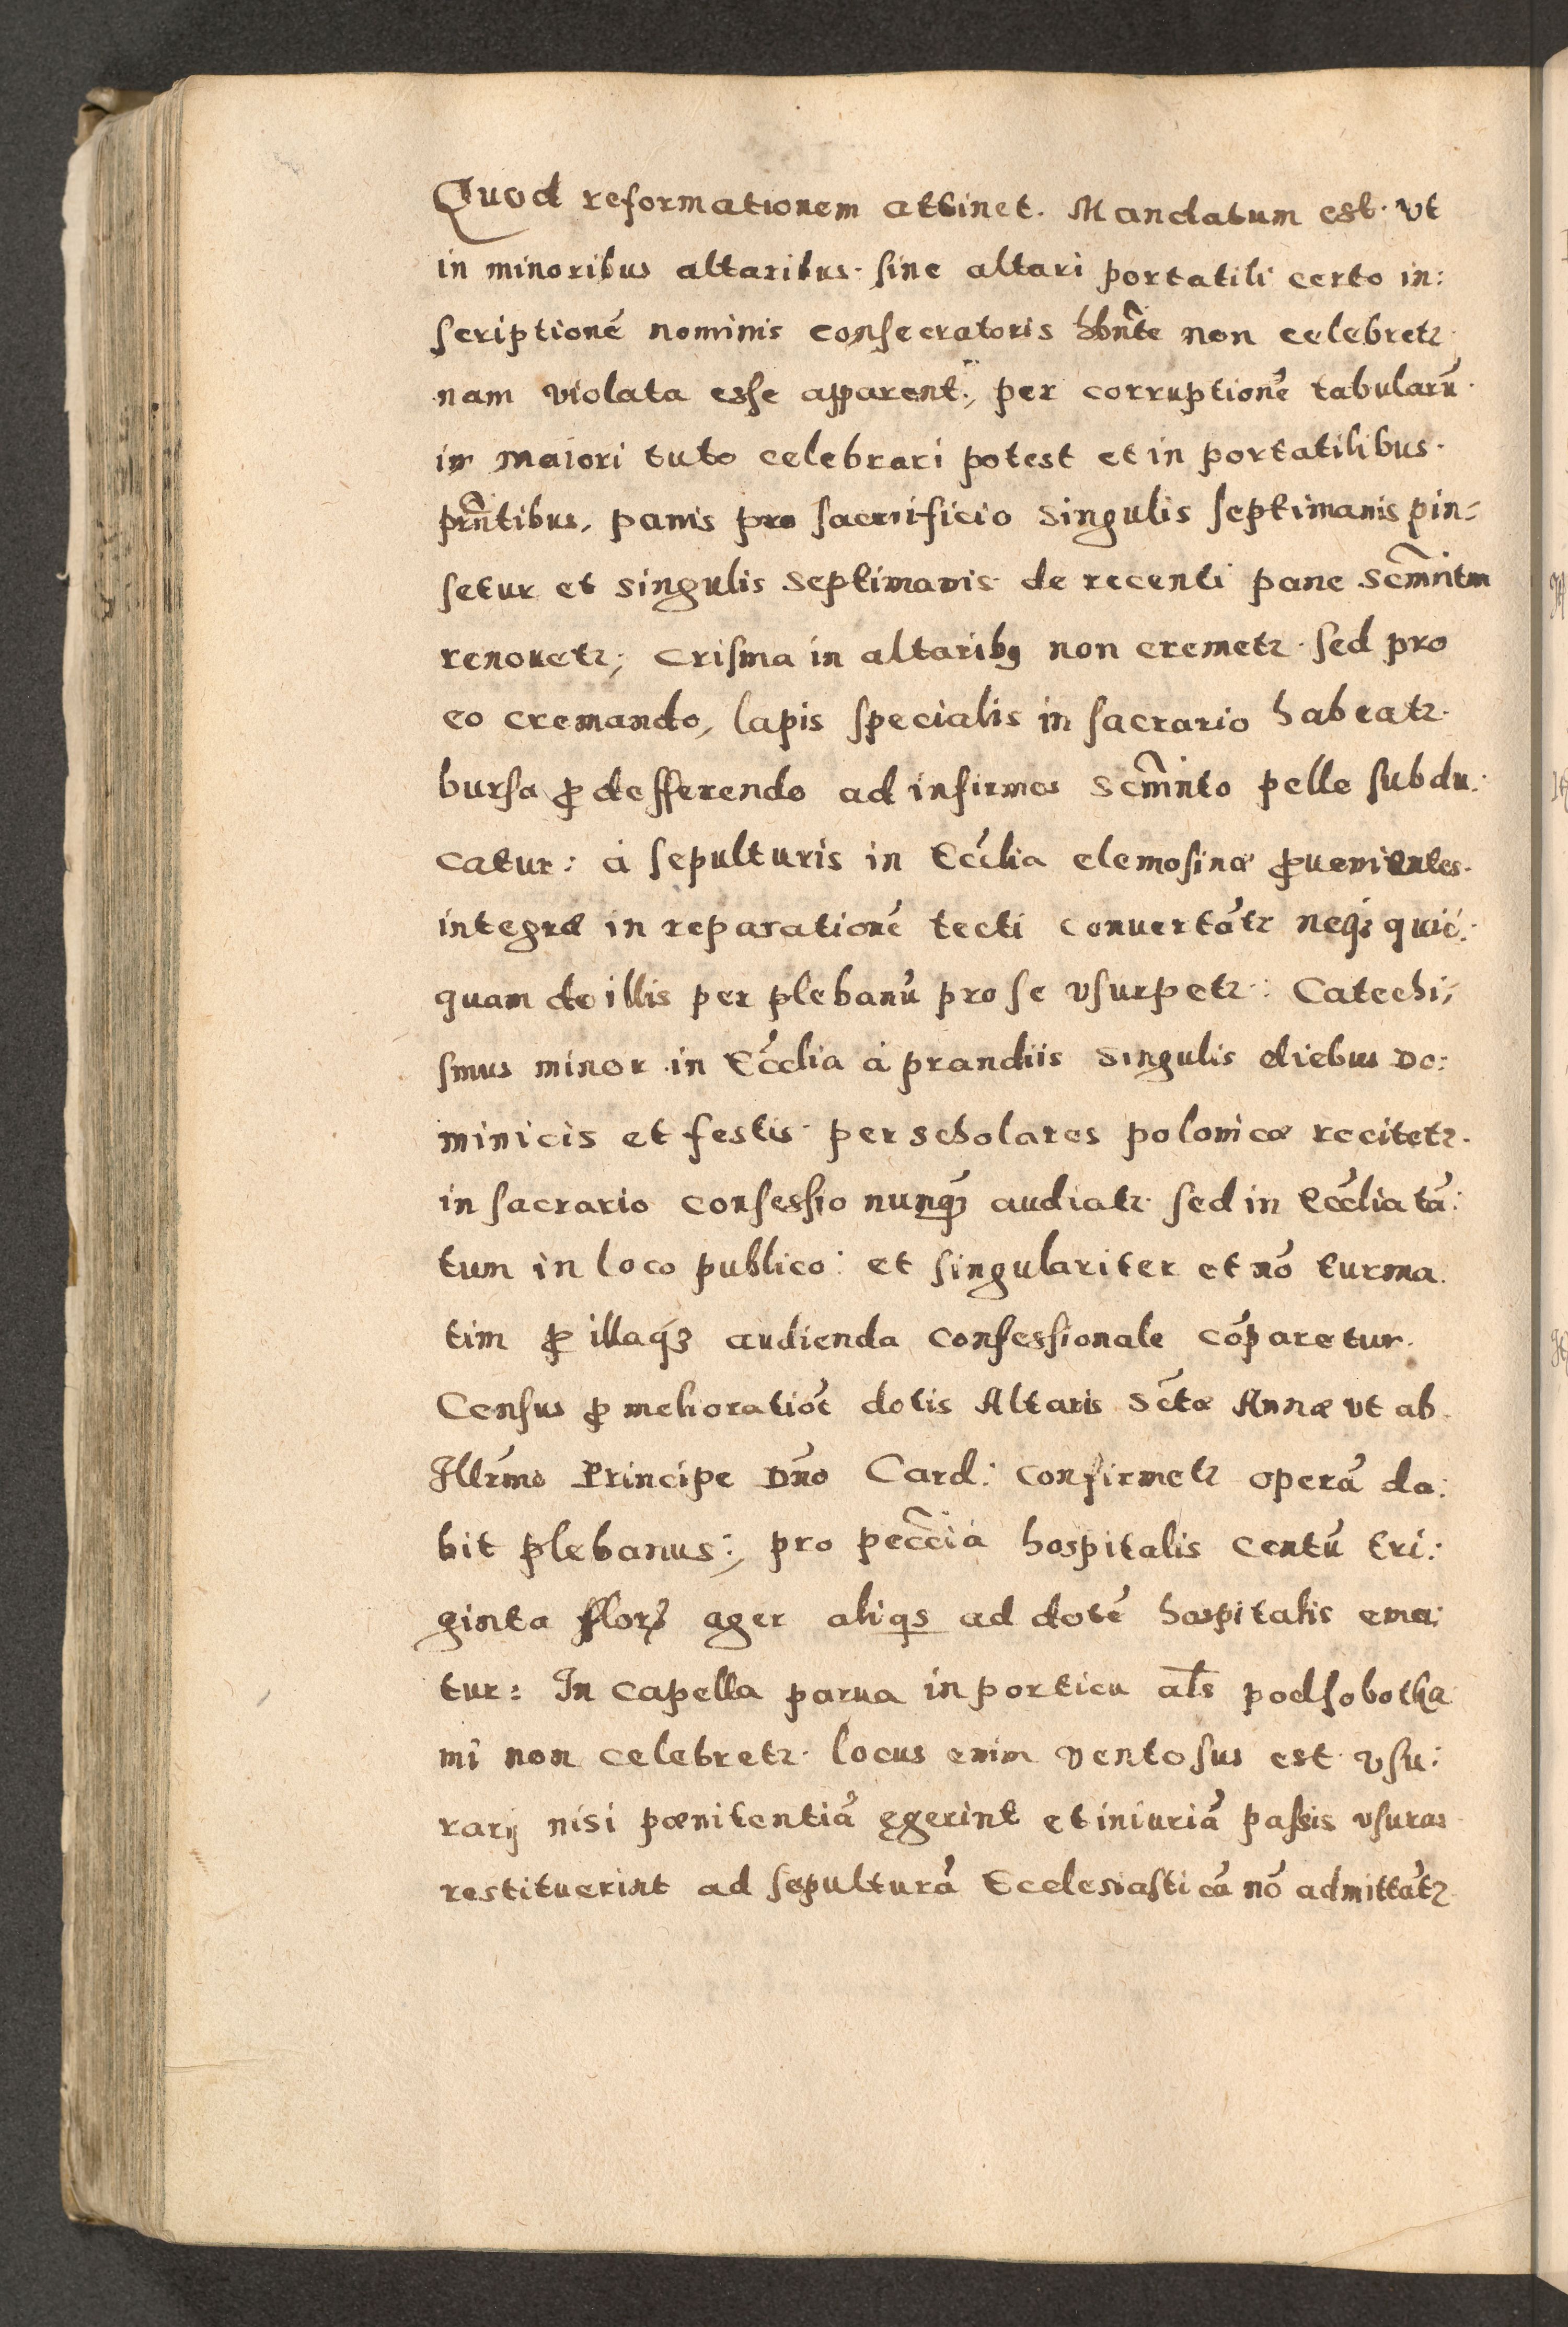 Quod reformationem attinet. Mandatum est. vt
in minoribus altaribus. sine altari portatili certo in:
scriptionē nominis consecratoris hbn̄te non celebretꝛ
nam violata esse apparent., per corruptionē tabularū.
in maiori tuto celebrari potest et in portatilibus.
prn̄tibus, panis pro sacrificio singulis septimanis pin=
setur et singulis septimanis de recenti pane Scm̄ntm
renouetꝛ; Crisma in altaribꝫ non cremetꝛ. sed pro
eo cremando, lapis specialis in sacrario habeatꝛ.
bursa ꝓ defferendo ad infirmos Scm̄nto pelle subdu:
catur: à sepulturis in Eccl̄ia elemosinæ ꝓuenientes.
integræ in reparationē tecti conuertātꝛ neqꝫ quic:
quam de illis per plebanū pro se vsurpetꝛ: Catechi:
smus minor in Eccl̄ia à prandiis singulis diebus Do:
minicis et festis. per scholares polonicæ recitetꝛ.
in sacrario confessio nunqꝫ audiatꝛ. sed in Eccl̄ia tā:
tum in loco publico: et singulariter et nō turma.
tim ꝓ illaqꝫ audienda confessionale cōparetur.
Census ꝓ melioratiōe dotis Altaris Sctæ Annæ vt ab
Illr̄mo Principe Dn̄o Card: confirmetꝛ operā da:
bit plebanus:, pro pecc̄ia hospitalis centū tri:
ginta florꝫ ager aliqs ad dotē hospitalis ema:
tur: In capella parua in porticu als podsobotha
mi non celebretꝛ. locus enim ventosus est. vsu:
rarij nisi pœnitentiā egerint et iniuriā passis vsuras
restituerint ad sepulturā Ecclesiasticā nō admittātꝛ